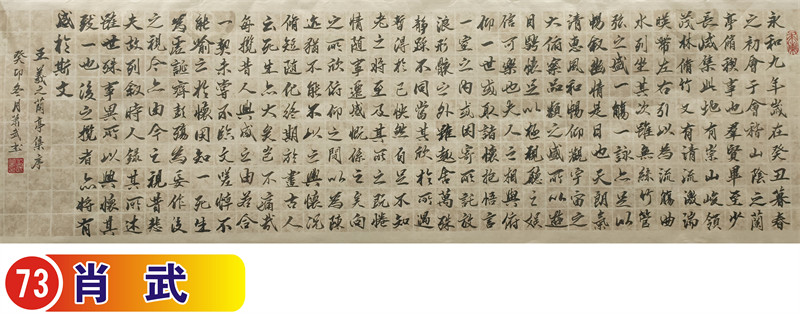 永和九年歲在癸丑暮春
之初會于會稽山陰之蘭
亭脩稧事也群賢畢至少
長咸集此地有崇山峻領
茂林脩竹又有清流激湍
暎帶左右引以為流觴曲
水列坐其次雖無絲竹管
弦之盛一觴一詠亦足以
暢叙幽情是日也天朗氣
清惠風和暢仰觀宇宙之
大俯察品類之盛所以遊
目騁懷足以極視聽之娛
信可樂也夫人之相與俯
仰一世或取諸懷抱悟言
一室之內或因寄所託放
浪形骸之外雖趣舍萬殊
静躁不同當其欣於所遇
暫得於己怏然自足不知
老之將至及其所之既惓
情隨事遷感慨係之矣向
之所欣俯仰之間以為陳
迹猶不能不以之興懷況
脩短隨化終期於盡古人
云死生亦大矣豈不痛哉
每攬昔人興感之由若合
一契未嘗不臨文嗟悼不
能喻之於懷固知一死生
為虛誕齊彭殤為妄作後
之視今亦由今之視昔悲
夫故列叙時人録其所述
雖世殊事異所以興懷其
致一也後之攬者亦將有
感於斯文
王羲之蘭亭集序
癸卯冬月肖武书
73 肖 武